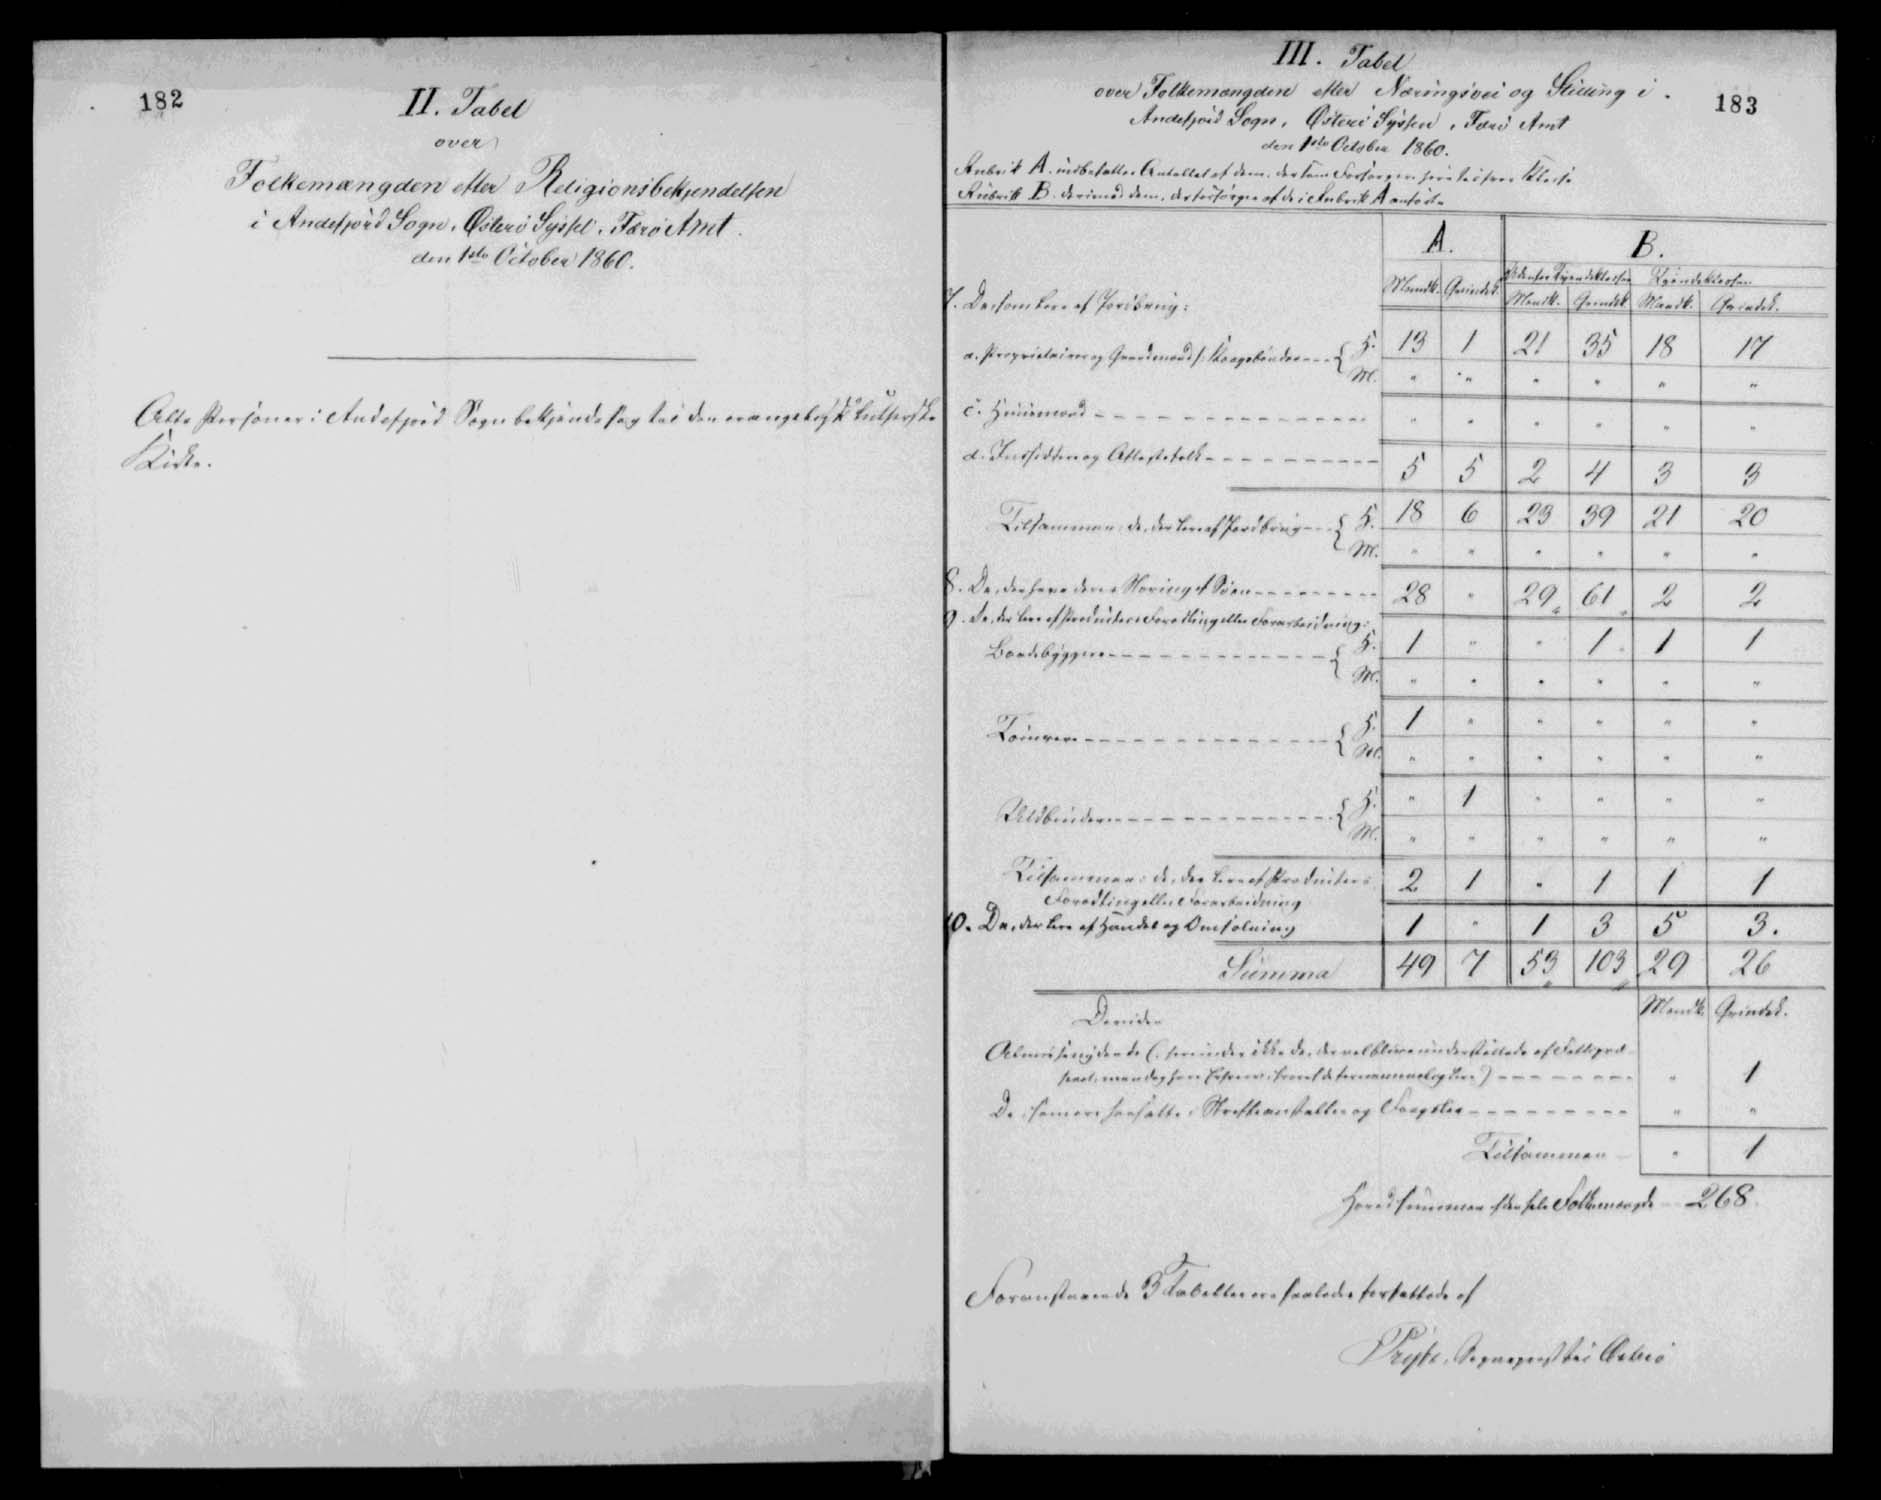 182
II. Tabel
over
Folkemængden efter Religionsbekjendelsen
i Andefjord Sogn, Østerø Syssel, Færø Amt.
den 1ste October 1860.
Alle Personer i Andefjord Sogn bekjende sig til den evangelisk lutherske
Kirke.
183
III. Tabel
over Folkemængden efter Næringsvei og Stilling i
Andefjord Sogn, Østerø Syssel, Færø Amt
den 1ste October 1860.
Rubrik A. indbefatter Antallet af dem, der som Forsørgere henhøre til Klasse
Rubrik B. derimod dem, der forsørges af de i Rubrik A anførte
A. B.
Udenfor Tyendeklassen Tyendeklassen
Mandk. Qvindek. Mandk. Qvindek. Mandk. Qvindek.
7. De som leve af Jordbrug:
a. Proprietairer og Gaardmænd ɔ: Kongsbønder --- { H. 13 1 21 35 18 17
M. " " " " " "
c. Huusmænd " " " " " "
d. Indsiddere og Aftægtsfolk 5 5 2 4 3 3
Tilsammen: de, der leve af Jordbrug --- { H. 18 6 23 39 21 20
M. " " " " " "
8. De, der have deres Næring af Søen 28 " 29 61 2 2
9. De, der leve af Producters Forædling eller Forarbeidning:
Baadebyggere { H. 1 " " 1 1 1
M. " " " " " "
Tømrere { H. 1 " " " " "
M. " " " " " "
Uldbindere { H. " 1 " " " "
M. " " " " " "
Tilsammen: de, der leve af Producters
Forædling eller Forarbeidning 2 1 " 1 1 1
10. De, der leve af Handel og Omsætning 1 " 1 3 5 3.
Summa 49 7 53 103 29 26
Mandk. Qvindek.
Desuden
Almissenydende (herunder ikke de, der vel blive understøttede af Fattigvæ-
senet, men dog have Erhverv, hvoraf de fornemmelig leve) " 1
De, som ere hensatte i Straffeanstalter og Fængsler " "
Tilsammen " 1
Hovedsummen af den hele Folkemængde 268
Foranstaaende 3 Tabeller ere saaledes forfattede af
Sognepræst til Østerø